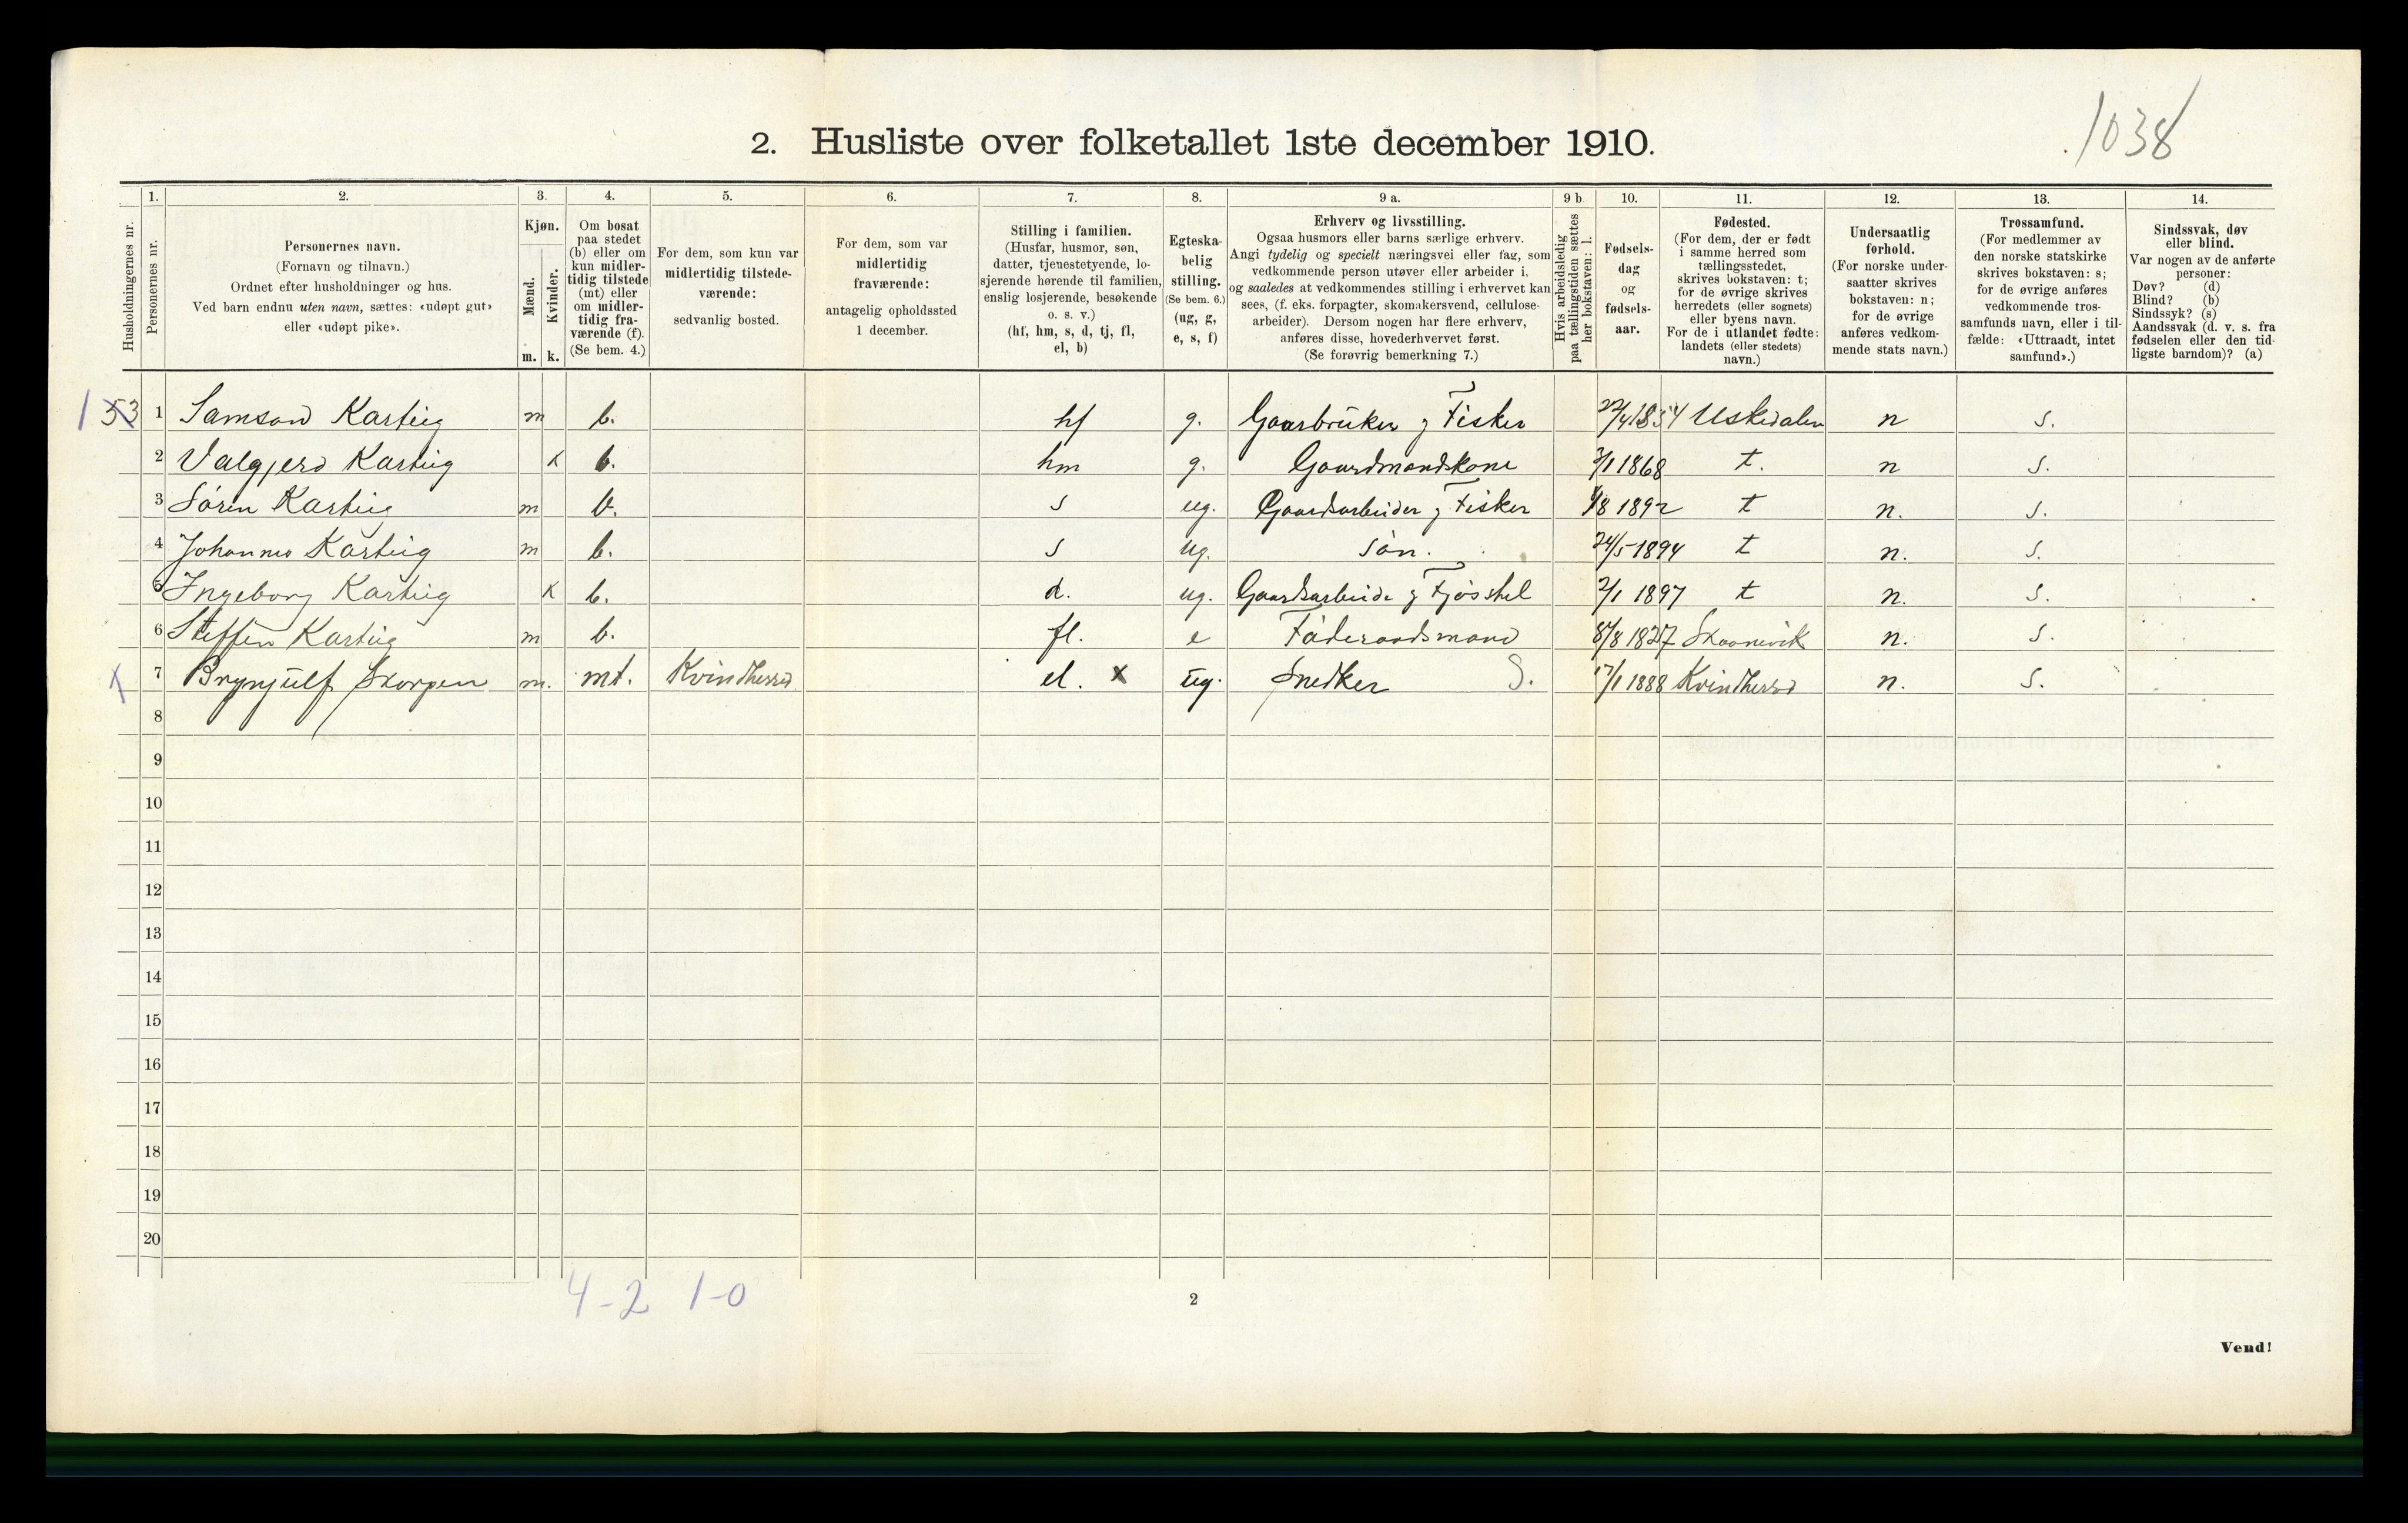 1038
2. Husliste over folketallet 1ste december 1910.
Husholdningernes nr.
1. Personernes nr.
2. Personernes navn. (Fornavn og tilnavn.) Ordnet efter husholdninger og hus. Ved barn endnu uten navn, sættes: «udøpt gut» eller «udøpt pike».
3. Kjøn. Mænd. m. Kvinder. k.
4. Om bosat paa stedet (b) eller om kun midlertidig tilstede (mt) eller om midlertidig fraværende (f). (Se bem. 4.)
5. For dem, som kun var midlertidig tilstedeværende: sedvanlig bosted.
6. For dem, som var midlertidig fraværende: antagelig opholdssted 1 december.
7. Stilling i familien. (Husfar, husmor, søn, datter, tjenestetyende, losjerende hørende til familien, enslig losjerende, besøkende o. s. v.) (hf, hm, s, d, tj, fl, el, b)
8. Egteskabelig stilling. (Se bem. 6.) (ug, g, e, s, f)
9 a. Erhverv og livsstilling. Ogsaa husmors eller barns særlige erhverv. Angi tydelig og specielt næringsvei eller fag, som vedkommende person utøver eller arbeider i, og saaledes at vedkommendes stilling i erhvervet kan sees, (f. eks. forpagter, skomakersvend, cellulosearbeider). Dersom nogen har flere erhverv, anføres disse, hovederhvervet først. (Se forøvrig bemerkning 7.)
9 b Hvis arbeidsledig paa tællingstiden sættes her bokstaven: l.
10. Fødselsdag og fødselsaar.
11. Fødested. (For dem, der er født i samme herred som tællingsstedet, skrives bokstaven: t; for de øvrige skrives herredets (eller sognets) eller byens navn. For de i utlandet fødte: landets (eller stedets) navn.)
12. Undersaatlig forhold. (For norske undersaatter skrives bokstaven: n; for de øvrige anføres vedkommende stats navn.)
13. Trossamfund. (For medlemmer av den norske statskirke skrives bokstaven: s; for de øvrige anføres vedkommende trossamfunds navn, eller i tilfælde: «Uttraadt, intet samfund».)
14. Sindssvak, døv eller blind. Var nogen av de anførte personer: Døv? (d) Blind? (b) Sindssyk? (s) Aandssvak (d. v. s. fra fødselen eller den tidligste barndom)? (a)
1 53 1 Samson Karteig m b. hf g. Gaarbruker g Fisker 22/4 1854 Uskedalen n s.
2 Valgjerd Karteig k b. hm g. Gaardmandskone 3/1 1868 t. n s.
3 Søren Karteig m b. s ug. Gaardsarbeider g Fisker 1/8 1892 t n. s.
4 Johannes Karteig m b. s ug. søn. 24/5 1894 t n. s.
5 Ingeborg Karteig k b. d. ug. Gaardsarbeide g Fjøsstel 2/1 1897 t n. s.
6 Steffen Karteig m b. fl. e Føderaadsmand 8/8 1827 Skaanevik n. s.
x 7 Brynjulf Skorpen m. mt. Kvindherred el. x ug. Snedker S. 17/1 1888 Kvindherred n. s.
8
9
10
11
12
13
14
15
16
17
18
19
20
4-2 1-0
2
Vend!